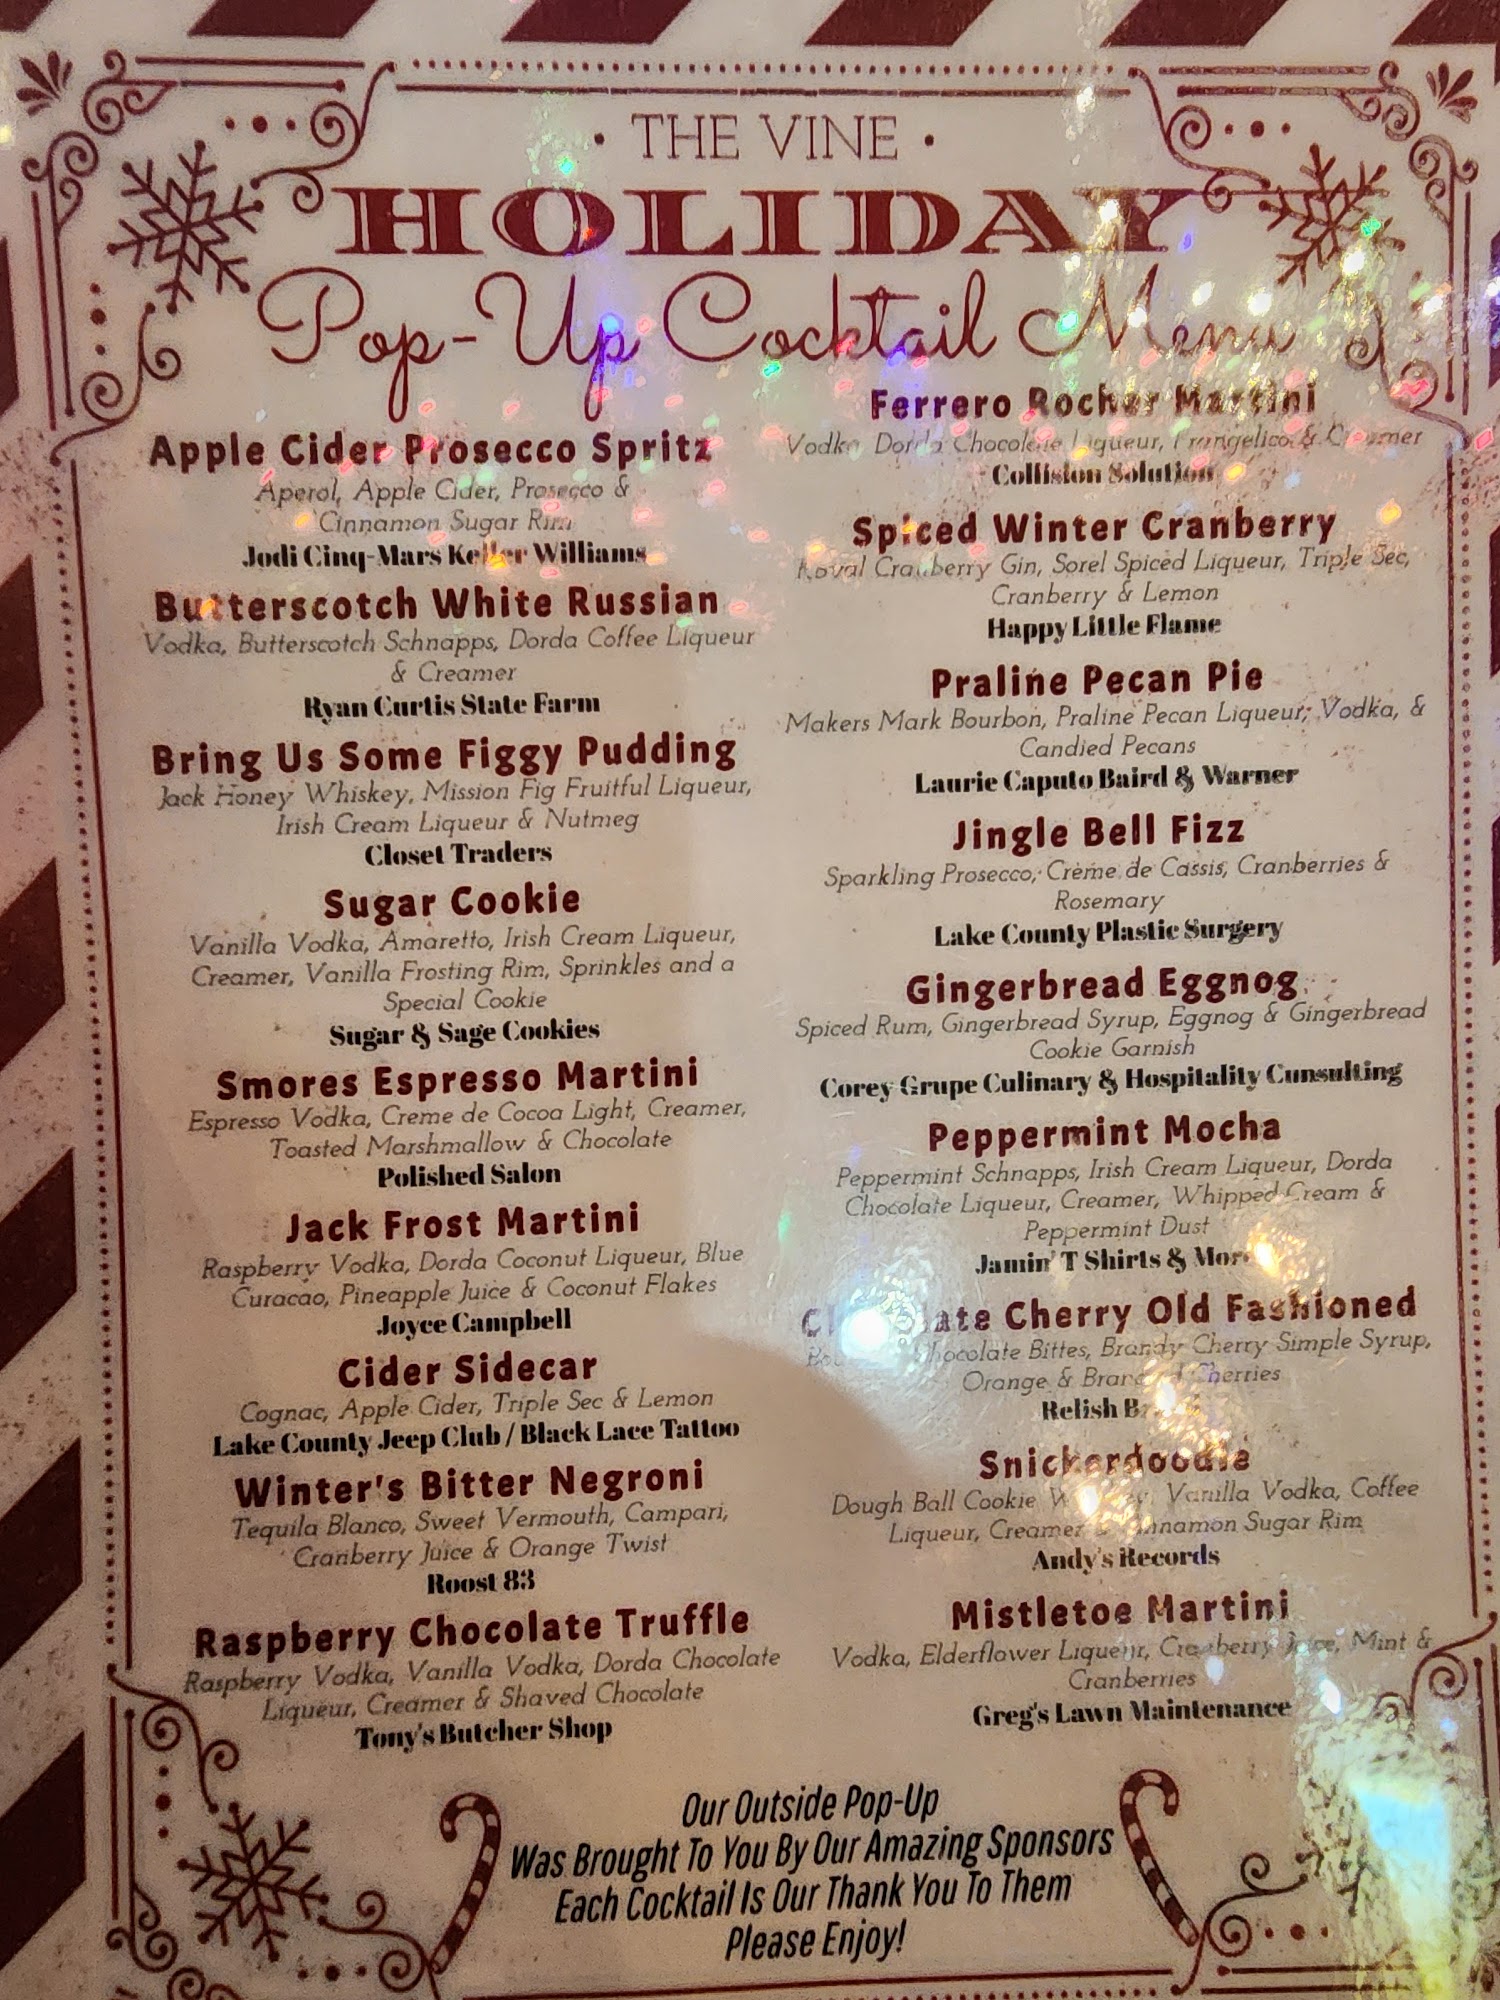 · THE VINE ·
HOLIDAY
Pop-Up Cocktail Menu
Apple Cider Prosecco Spritz
Aperol, Apple Cider, Prosecco &
Cinnamon Sugar Rim
Jodi Cinq-Mars Keller Williams
Butterscotch White Russian
Vodka, Butterscotch Schnapps, Dorda Coffee Liqueur
& Creamer
Ryan Curtis State Farm
Bring Us Some Figgy Pudding
Jack Honey Whiskey, Mission Fig Fruitful Liqueur,
Irish Cream Liqueur & Nutmeg
Closet Traders
Sugar Cookie
Vanilla Vodka, Amaretto, Irish Cream Liqueur,
Creamer, Vanilla Frosting Rim, Sprinkles and a
Special Cookie
Sugar & Sage Cookies
Smores Espresso Martini
Espresso Vodka, Creme de Cocoa Light, Creamer,
Toasted Marshmallow & Chocolate
Polished Salon
Jack Frost Martini
Raspberry Vodka, Dorda Coconut Liqueur, Blue
Curacao, Pineapple Juice & Coconut Flakes
Joyce Campbell
Cider Sidecar
Cognac, Apple Cider, Triple Sec & Lemon
Lake County Jeep Club / Black Lace Tattoo
Winter's Bitter Negroni
Tequila Blanco, Sweet Vermouth, Campari,
Cranberry Juice & Orange Twist
Roost 83
Raspberry Chocolate Truffle
Raspberry Vodka, Vanilla Vodka, Dorda Chocolate
Liqueur, Creamer & Shaved Chocolate
Tony's Butcher Shop
Ferrero Rocher Martini
Vodka, Dorda Chocolate Liqueur, Frangelico & Creamer
Collision Solution
Spiced Winter Cranberry
Koval Cranberry Gin, Sorel Spiced Liqueur, Triple Sec,
Cranberry & Lemon
Happy Little Flame
Praline Pecan Pie
Makers Mark Bourbon, Praline Pecan Liqueur, Vodka, &
Candied Pecans
Laurie Caputo Baird & Warner
Jingle Bell Fizz
Sparkling Prosecco, Crème de Cassis, Cranberries &
Rosemary
Lake County Plastic Surgery
Gingerbread Eggnog
Spiced Rum, Gingerbread Syrup, Eggnog & Gingerbread
Cookie Garnish
Corey Grupe Culinary & Hospitality Cunsulting
Peppermint Mocha
Peppermint Schnapps, Irish Cream Liqueur, Dorda
Chocolate Liqueur, Creamer, Whipped Cream &
Peppermint Dust
Jamin' T Shirts & More
Chocolate Cherry Old Fashioned
Chocolate Bittes, Brandy Cherry Simple Syrup,
Orange & Cherries
Relish
Snickerdoodle
Dough Ball Cookie Whiskey, Vanilla Vodka, Coffee
Liqueur, Creamer & Cinnamon Sugar Rim
Andy's Records
Mistletoe Martini
Vodka, Elderflower Liqueur, Cranberry Juice, Mint &
Cranberries
Greg's Lawn Maintenance
Our Outside Pop-Up
Was Brought To You By Our Amazing Sponsors
Each Cocktail Is Our Thank You To Them
Please Enjoy!